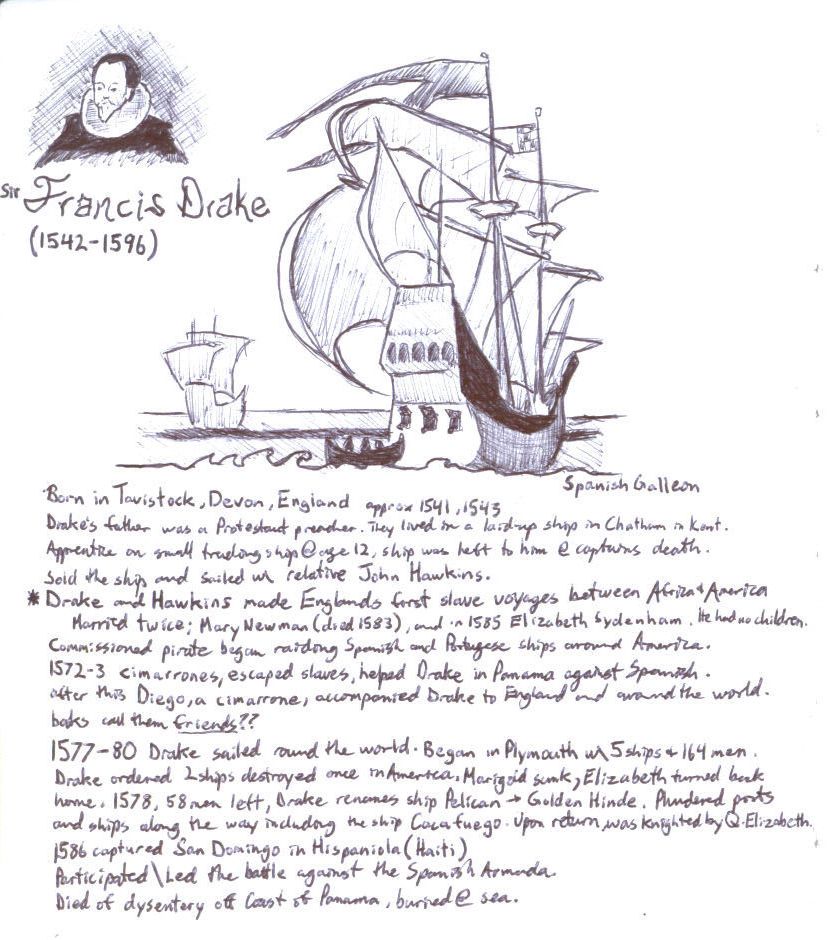 Sir Francis Drake
(1542-1596)
Spanish Galleon
Born in Tavistock, Devon, England approx 1541, 1543
Drake's father was a Protestant preacher. They lived in a laid-up ship in Chatham in Kent.
Apprentice on small trading ship @ age 12, ship was left to him @ captains death.
Sold the ship and sailed w\ relative John Hawkins.
* Drake and Hawkins made Englands first slave voyages between Africa & America
Married twice; Mary Newman (died 1583), and in 1585 Elizabeth Sydenham. He had no children.
Commissioned pirate began raiding Spanish and Portugese ships around America.
1572-3 cimarrones, escaped slaves, helped Drake in Panama against Spanish.
after this Diego, a cimarrone, accompanied Drake to England and around the world.
books call them friends??
1577-80 Drake sailed round the world. Began in Plymouth w\ 5 ships & 164 men.
Drake ordered 2 ships destroyed once in America, Marigold sunk, Elizabeth turned back
home. 1578, 58 men left, Drake renames ship Pelican → Golden Hinde. Plundered ports
and ships along the way including the ship Cacafuego. Upon return, was knighted by Q. Elizabeth.
1586 captured San Domingo in Hispaniola (Haiti)
Participated \ Led the battle against the Spanish Armada.
Died of dysentery off Coast of Panama, buried @ sea.